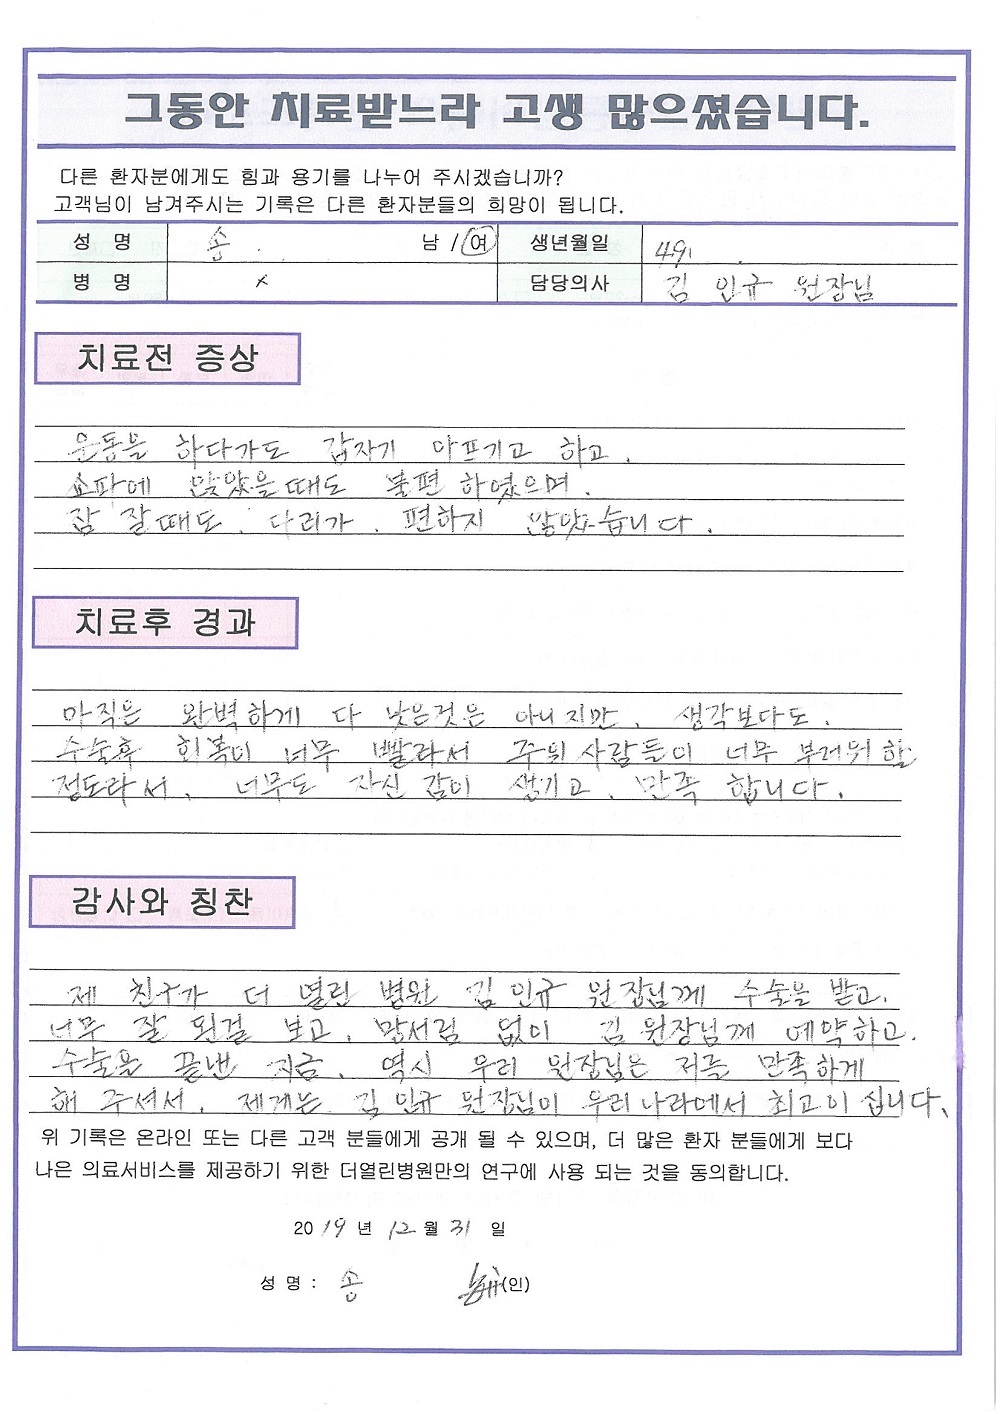 그동안 치료받느라 고생 많으셨습니다.
다른 환자분에게도 힘과 용기를 나누어 주시겠습니까?
고객님이 남겨주시는 기록은 다른 환자분들의 희망이 됩니다.
성 명 송 남 / 여 생년월일 491
병 명 x 담당의사 김 인규 원장님
치료전 증상
운동을 하다가도 갑자기 아프기고 하고.
쇼파에 앉았을때도 불편 하였으며.
잠 잘때도. 다리가. 편하지 않았습니다.
치료후 경과
아직은 완벽하게 다 낮은것은 아니지만. 생각보다도.
수술후 회복이 너무 빨라서 주위 사람들이 너무 부러워 할
정도라서. 너무도 자신 감이 생기고. 만족 합니다.
감사와 칭찬
제 친구가 더 열린 병원 김 인규 원장님께 수술을 받고.
너무 잘 된걸 보고. 망서림 없이 김 원장님께 예약하고.
수술을 끝낸 지금. 역시 우리 원장님은 저를 만족하게
해 주셔서. 제게는 김 인규 원장님이 우리나라에서 최고이 십니다.
위 기록은 온라인 또는 다른 고객 분들에게 공개 될 수 있으며, 더 많은 환자 분들에게 보다
나은 의료서비스를 제공하기 위한 더열린병원만의 연구에 사용 되는 것을 동의합니다.
2019 년 12 월 31 일
성 명 : 송 (인)